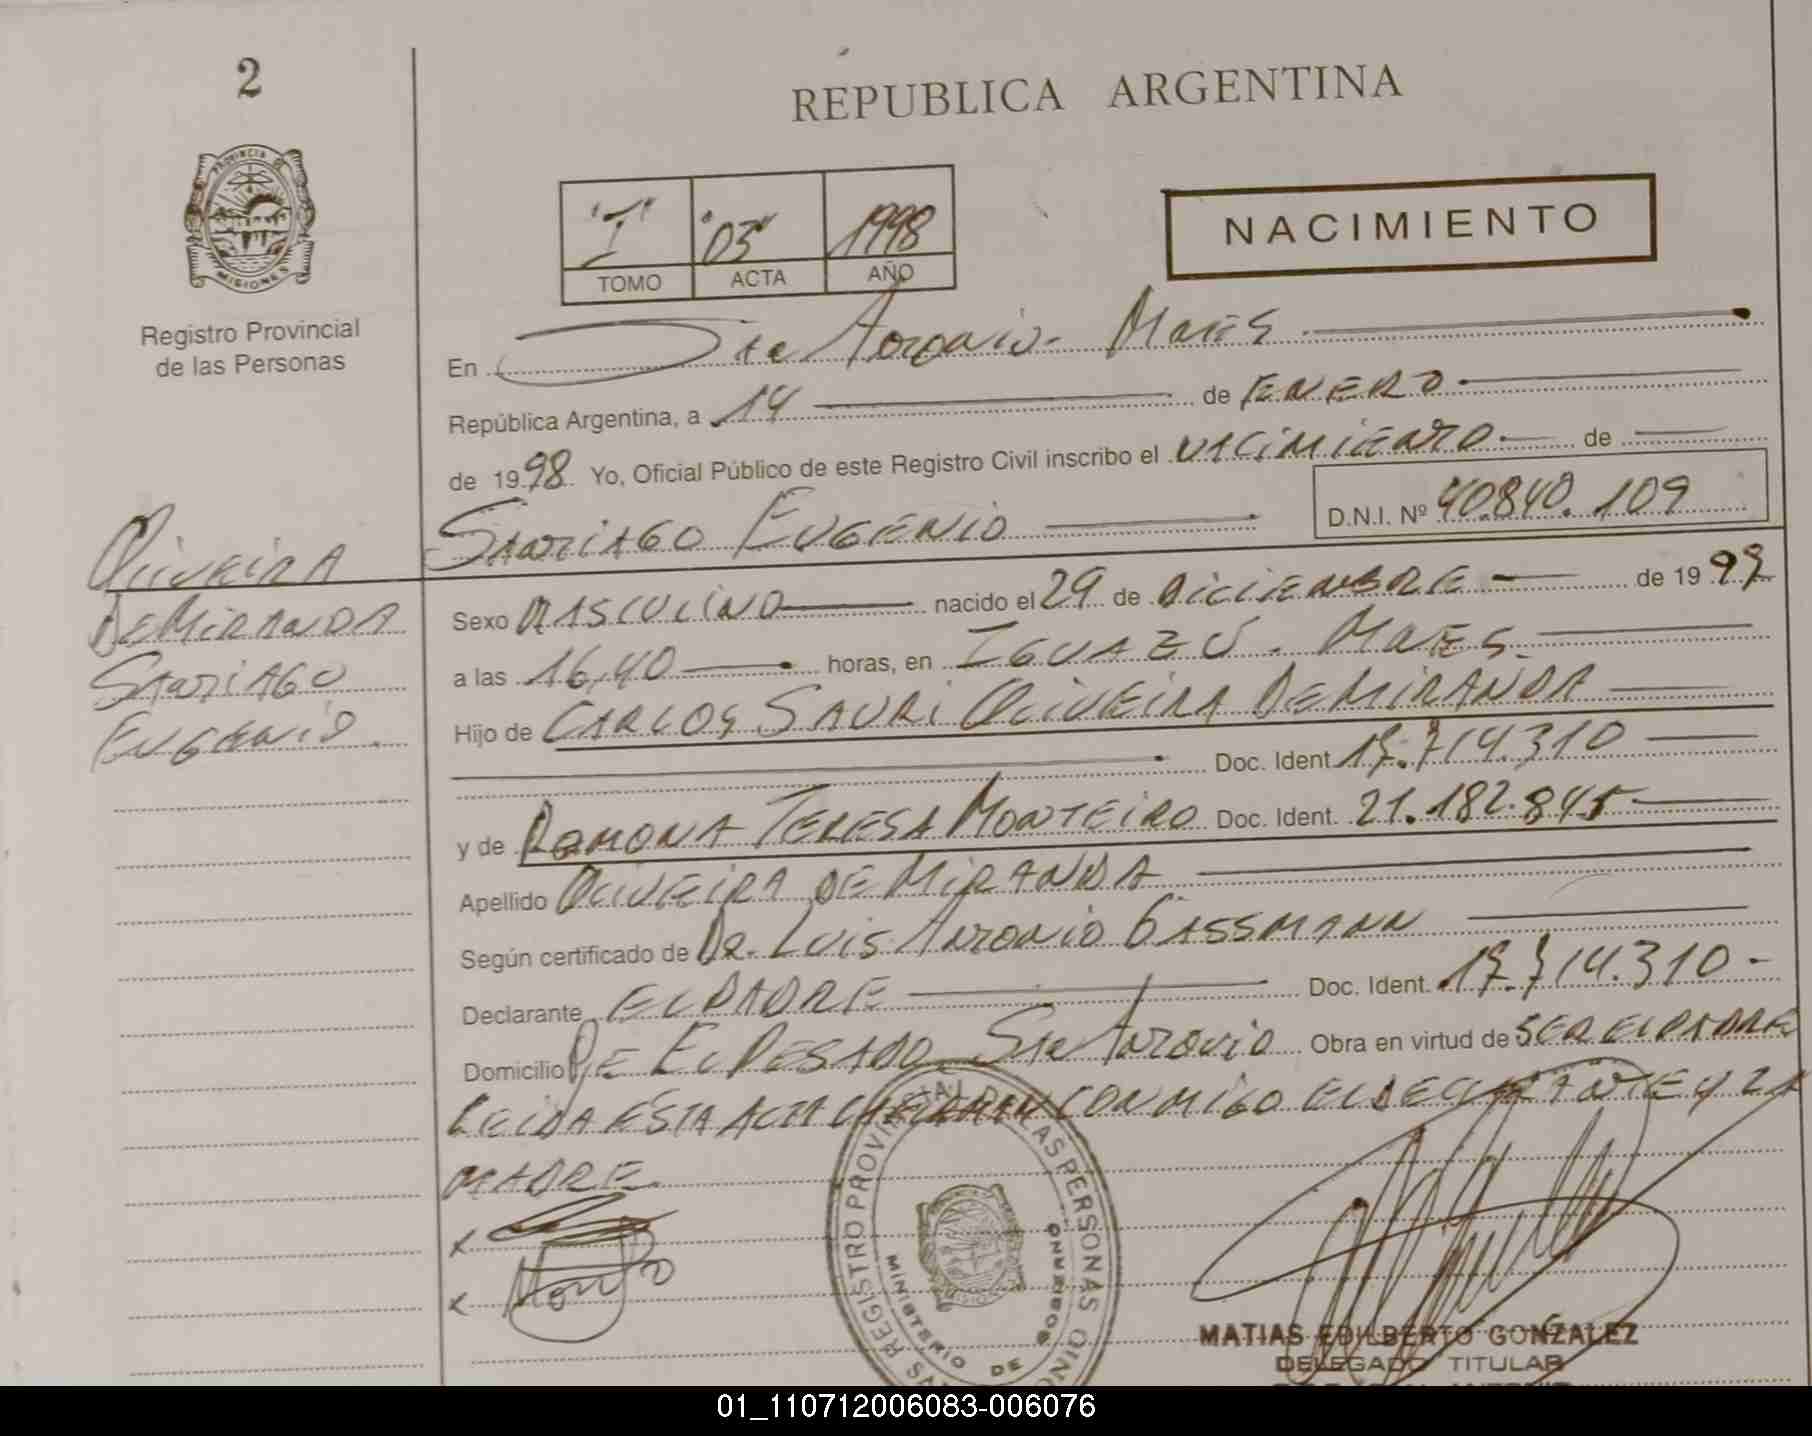 2
REPUBLICA ARGENTINA
PROVINCIA DE
MISIONES
Registro Provincial
de las Personas
"I" "03" 1998
TOMO ACTA AÑO
NACIMIENTO
En San Antonio - Mnes
República Argentina, a 14 de ENERO
de 1998 Yo, Oficial Público de este Registro Civil inscribo el NACIMIENTO de
SANTIAGO EUGENIO D.N.I. Nº 40.840.109
OLIVEIRA
DE MIRANDA
SANTIAGO
EUGENIO.
Sexo MASCULINO nacido el 29 de DICIEMBRE de 1997
a las 16,40 horas, en IGUAZÚ - MNES.
Hijo de CARLOS SAURI OLIVEIRA DE MIRANDA
Doc. Ident. 17.714.310
y de RAMONA TERESA MONTEIRO Doc. Ident. 21.182.845
Apellido OLIVEIRA DE MIRANDA
Según certificado de DR. LUIS ANTONIO GASSMANN
Declarante EL PADRE Doc. Ident. 17.714.310-
Domicilio PJE EL PESADO SAN ANTONIO Obra en virtud de SER EL PADRE
LEIDA ESTA ACTA LA FIRMAN CONMIGO EL DECLARANTE Y LA
MADRE.
x
x
REGISTRO PROVINCIAL DE LAS PERSONAS
MINISTERIO DE GOBIERNO
MATIAS EDILBERTO GONZALEZ
DELEGADO TITULAR
01_110712006083-006076